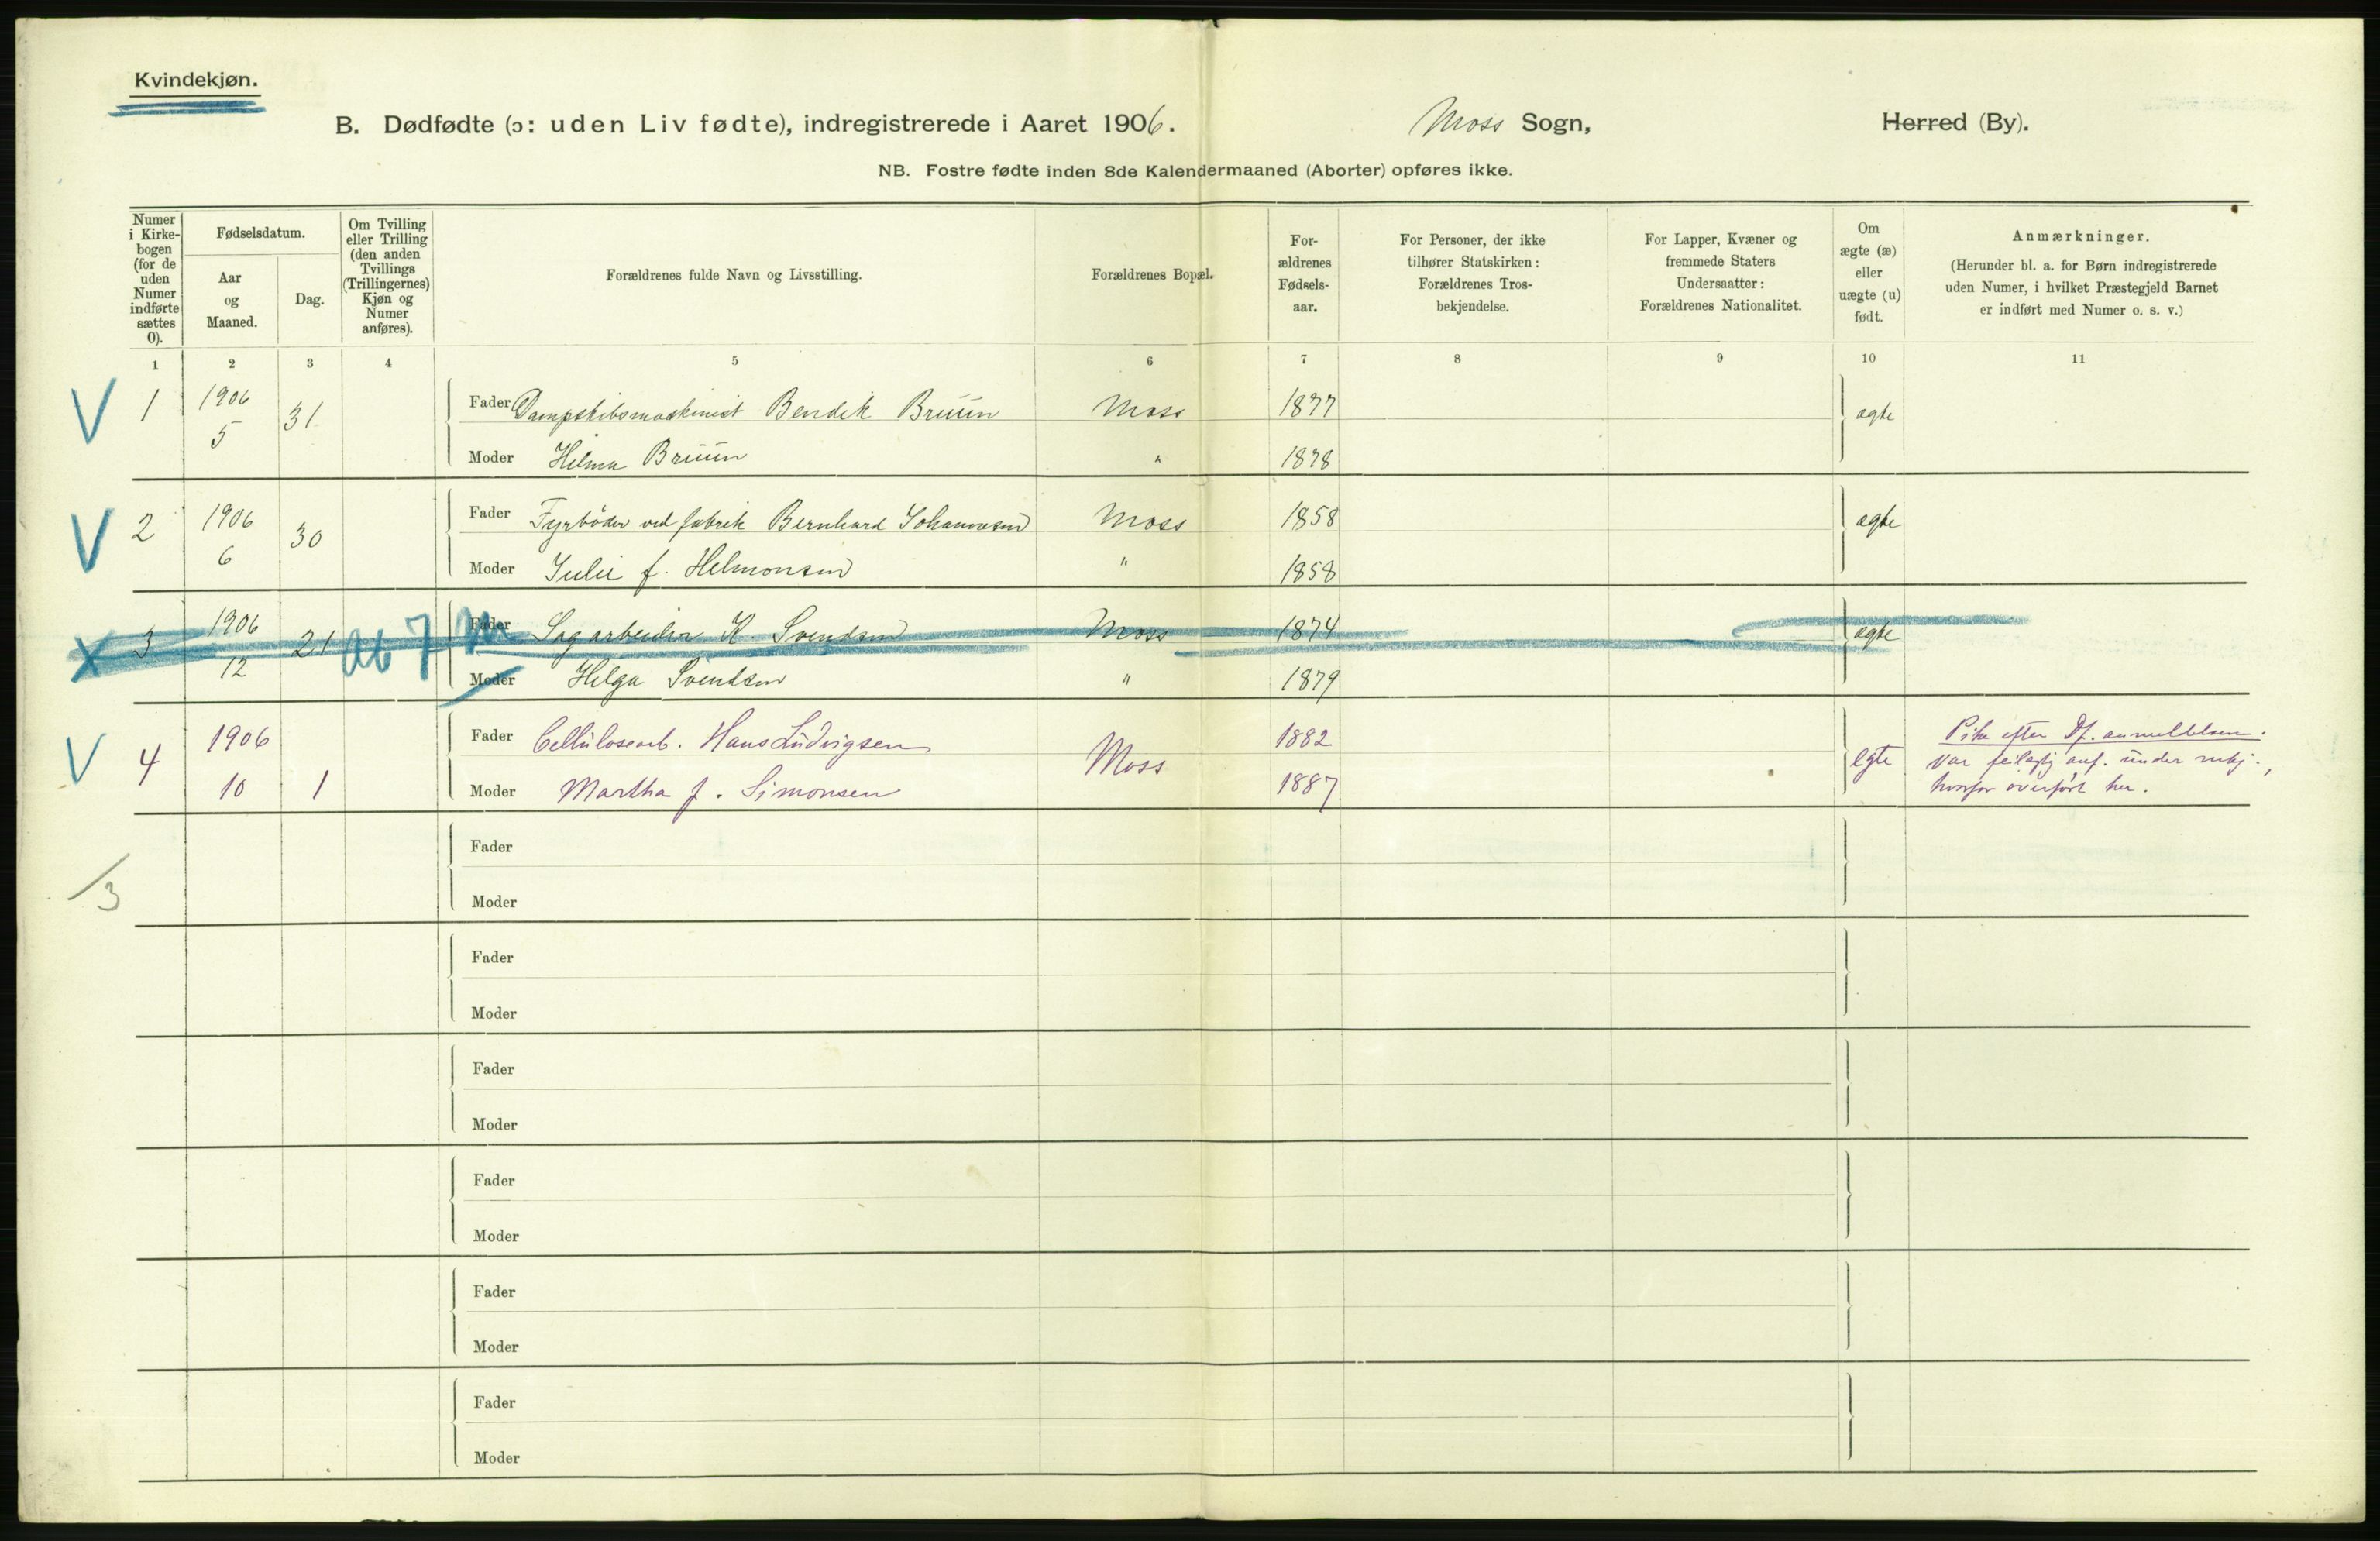 Kvindekjøn.
B. Dødfødte (ɔ: uden Liv fødte), indregistrerede i Aaret 1906. Moss Sogn, Herred (By).
NB. Fostre fødte inden 8de Kalendermaaned (Aborter) opføres ikke.
Numer i Kirke-bogen (for de uden Numer indførte sættes 0).
Fødselsdatum.
Aar og Maaned.
Dag.
Om Tvilling eller Trilling (den anden Tvillings (Trillingernes) Kjøn og Numer anføres).
Forældrenes fulde Navn og Livsstilling.
Forældrenes Bopæl.
For-ældrenes Fødsels-aar.
For Personer, der ikke tilhører Statskirken: Forældrenes Tros-bekjendelse.
For Lapper, Kvæner og fremmede Staters Undersaatter: Forældrenes Nationalitet.
Om ægte (æ) eller uægte (u) født.
Anmærkninger.
(Herunder bl. a. for Børn indregistrerede uden Numer, i hvilket Præstegjeld Barnet er indført med Numer o. s. v.)
1 2 3 4 5 6 7 8 9 10 11
V 1 1906 5 31 Fader Dampskibsmaskinist Bendik Bruun Moss 1877 ægte
Moder Hilma Bruun " 1878
V 2 1906 6 30 Fader Fyrbøder ved fabrik Bernhard Johannesen Moss 1858 ægte
Moder Julie f. Helmonsen " 1858
X 3 1906 12 21 ab 7 m Fader Sagarbeider K. Svendsen Moss 1874 ægte
Moder Helga Svendsen " 1879
V 4 1906 10 1 Fader Cellulosearb. Hans Ludvigsen Moss 1882 egte Pike efter Df. anmeldelsen.
Moder Martha f. Simonsen 1887 var feilagtig anf. under mkj.,
hvorfor overført her.
/3
Fader
Moder
Fader
Moder
Fader
Moder
Fader
Moder
Fader
Moder
Fader
Moder